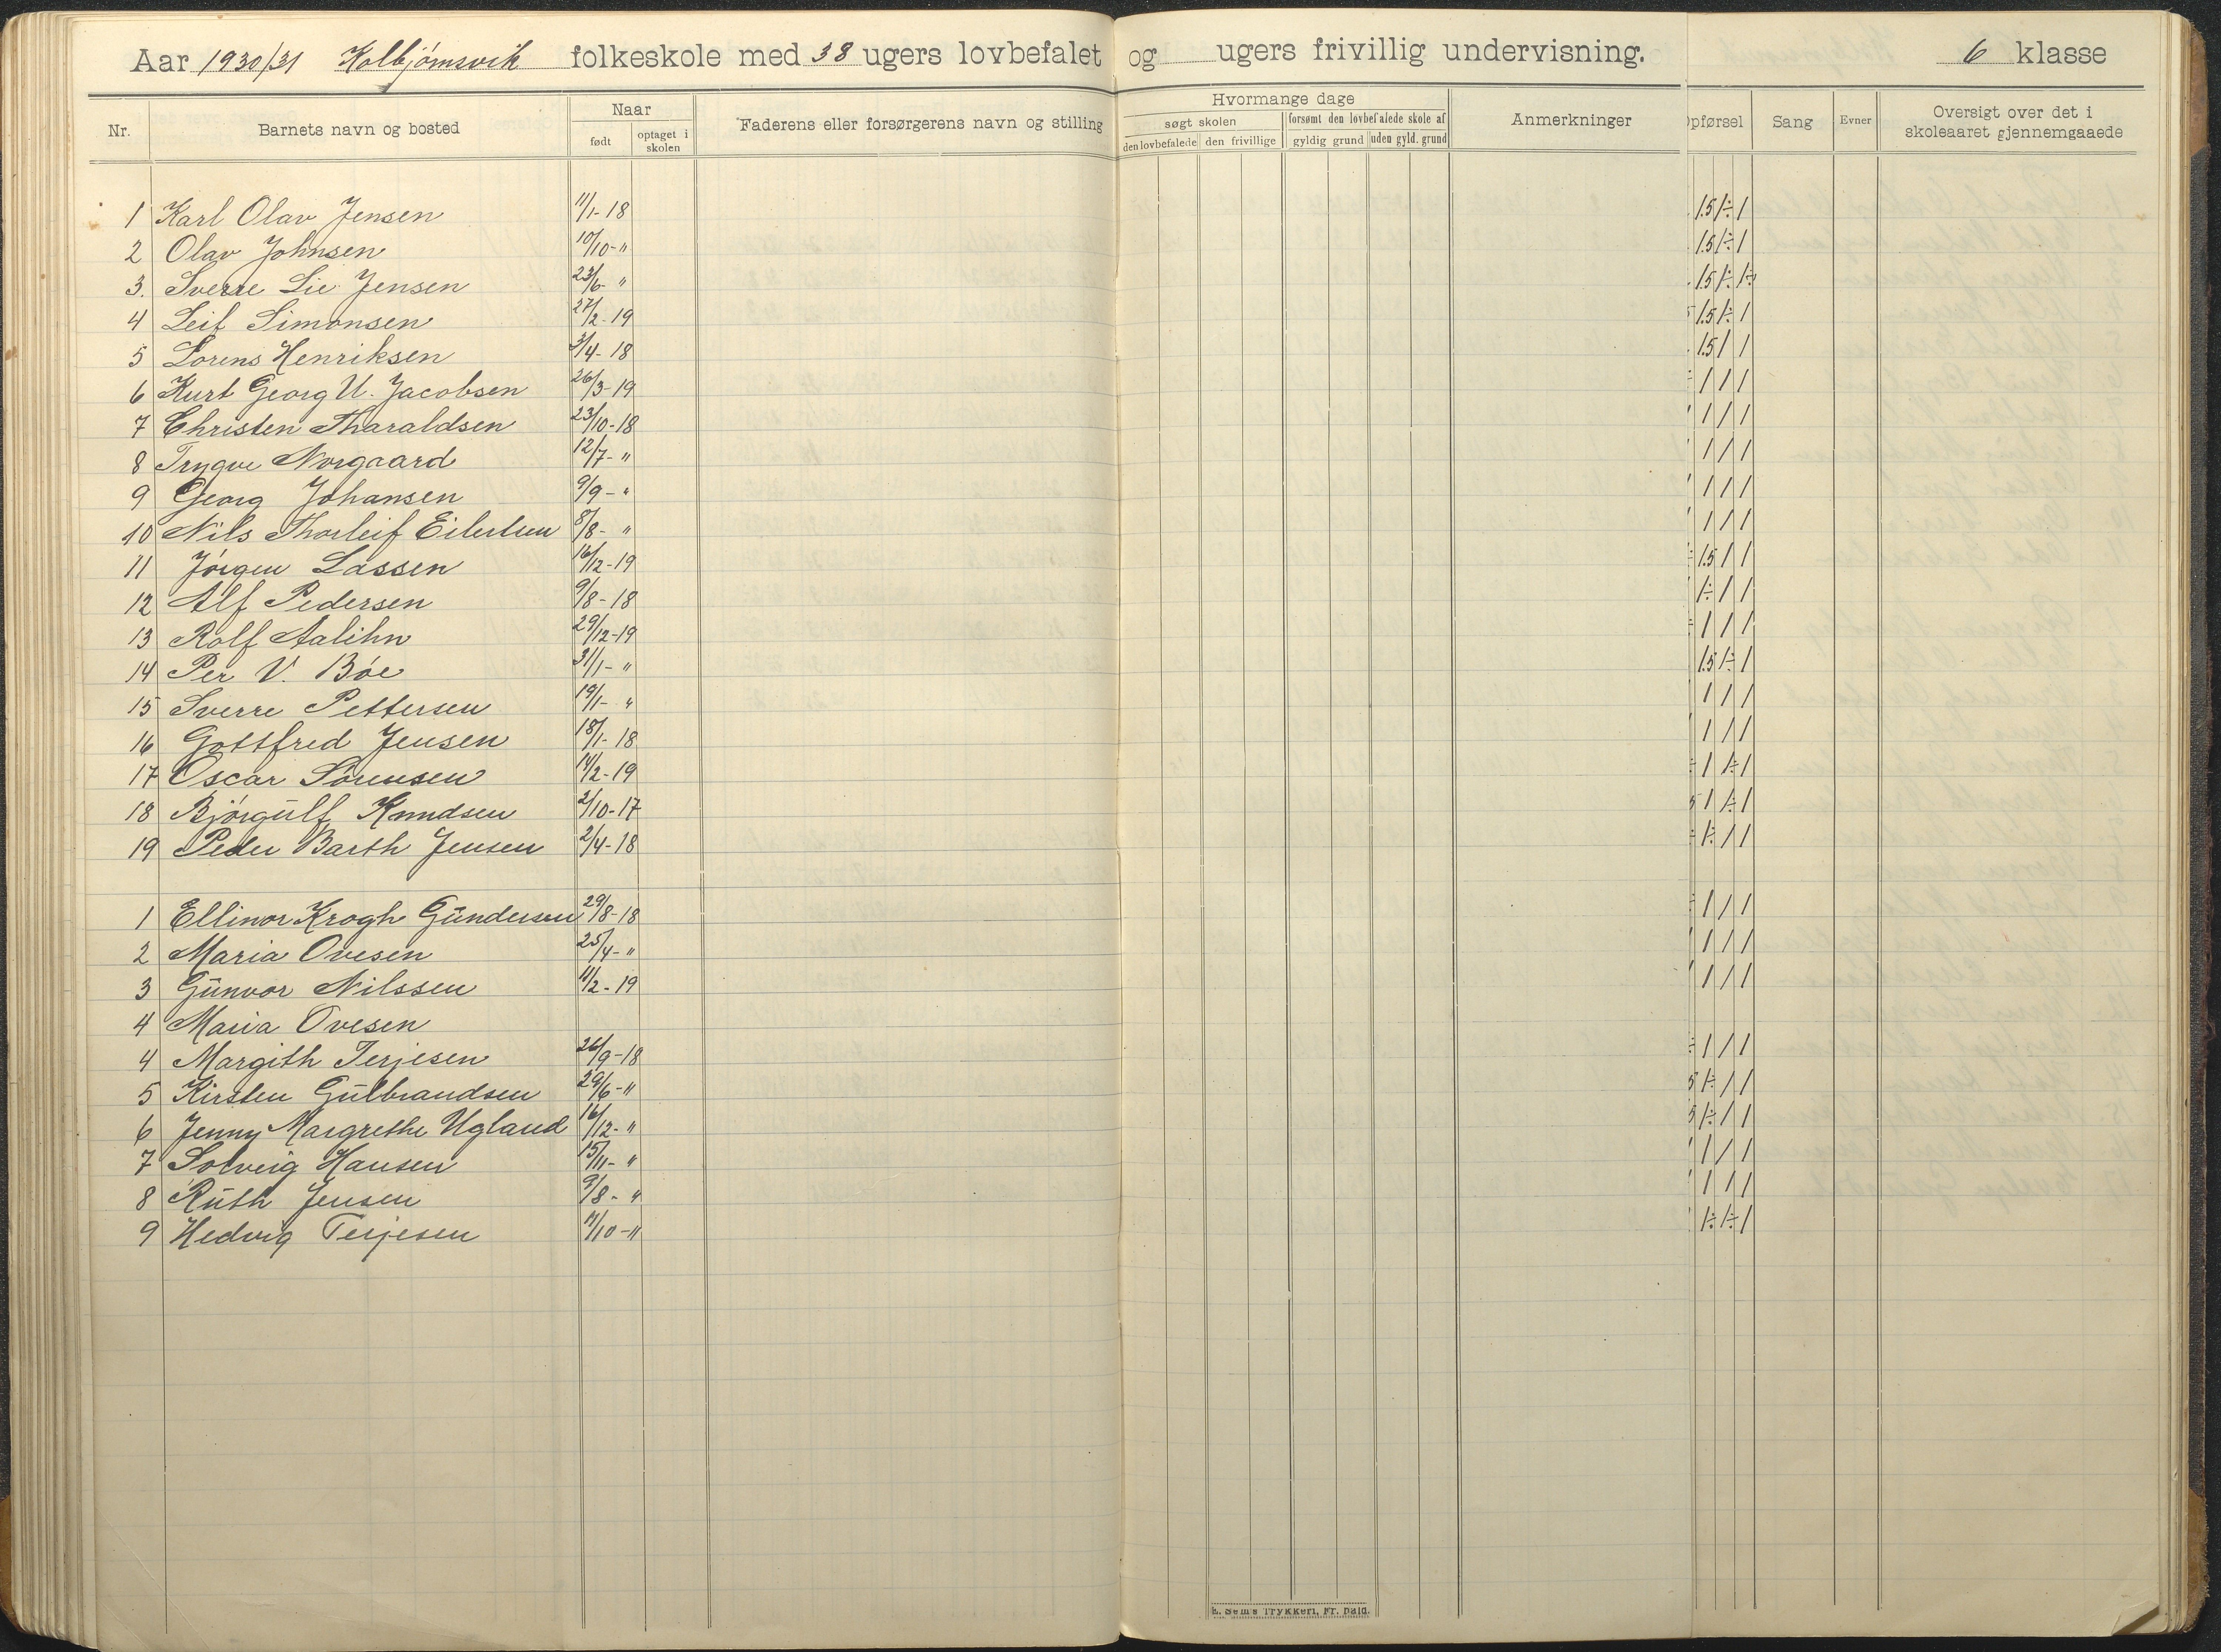 Aar 1930/31 Kolbjørnsvik folkeskole med 38 ugers lovbefalet og ugers frivillig undervisning. 6 klasse
Nr. Barnets navn og bosted Naar født optaget i skolen Faderens eller forsørgerens navn og stilling Hvormange dage søgt skolen den lovbefalede den frivillige forsømt den lovbefalede skole af gyldig grund uden gyld. grund Anmerkninger Opførsel Sang Evner Oversigt over det i skoleaaret gjennemgaaede
1 Karl Olav Jensen 11/1-18 1.5 1÷ 1
2 Olav Johnsen 10/10-" 1.5 1÷ 1
3. Sverre Lie Jensen 23/6- " 1.5 1÷ 1÷
4 Leif Simonsen 27/2-19 1.5 1÷ 1
5 Lorens Henriksen 3/4-18 1.5 1 1
6 Kurt Georg U. Jacobsen 26/3-19 1 1 1
7 Christen Tharaldsen 23/10-18 1 1 1
8 Trygve Norgaard 12/7-" 1 1 1
9 Georg Johansen 9/9-" 1 1 1
10 Nils Thorleif Eilertsen 8/8-" 1 1 1
11 Jörgen Lassen 16/12-19 1.5 1 1
12 Alf Pedersen 9/8-18 1÷ 1 1
13 Rolf Aalihn 29/12-19 1 1 1
14 Per V. Böe 31/1-" 1.5 1÷ 1
15 Sverre Pettersen 19/1-" 1 1 1
16 Gottfred Jensen 18/1-18 1 1 1
17 Oscar Sörensen 14/2-19 1 1÷ 1
18 Björgulf Knudsen 2/10-17 1 1÷ 1
19 Peder Barth Jensen 2/4-18 1÷ 1 1
1 Ellinor Krogh Gundersen 29/8-18 1 1 1
2 Maria Ovesen 25/4-" 1 1 1
3 Gunvor Nilssen 11/2-19 1 1 1
4 Maria Ovesen
4 Margith Terjesen 26/9-18 1 1 1
5 Kirsten Gulbrandsen 29/6-" 1÷ 1 1
6 Jenny Margrethe Ugland 16/12-" 1÷ 1 1
7 Solveig Hansen 15/11-" 1 1 1
8 Ruth Jensen 9/8-" 1 1 1
9 Hedvig Terjesen 11/10-" 1÷ 1÷ 1
E. Sem's Trykkeri, Fr. hald.